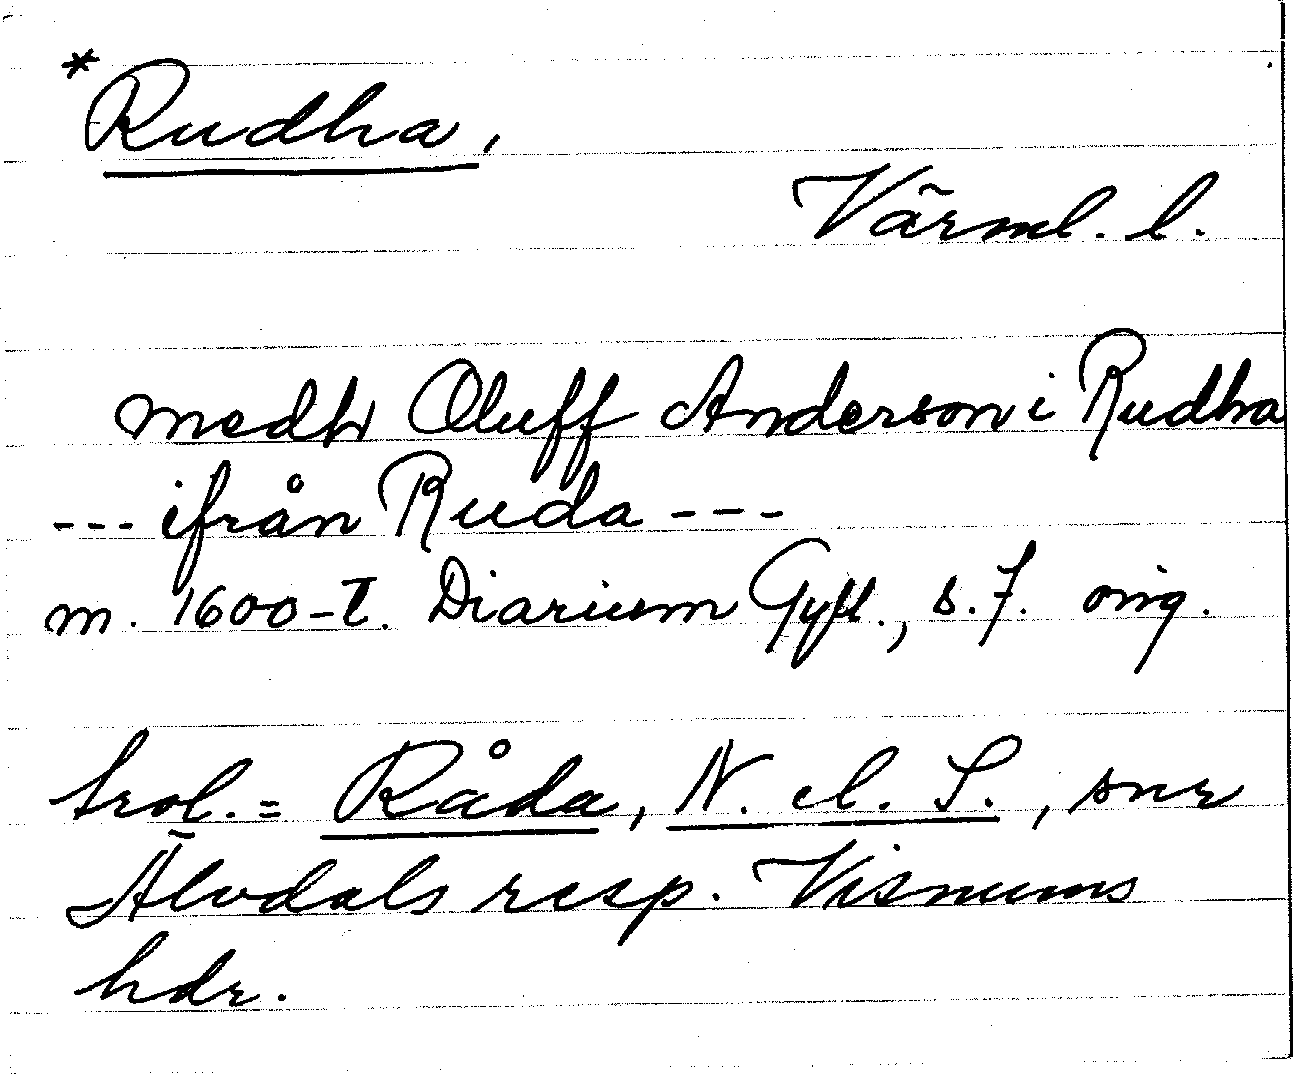 * Rudha,
Värml. l.
medh Oluff Anderson i Rudha
--- ifrån Ruda ---
m. 1600-t. Diarium Gyll., s. 7. orig.
trol. = Råda, N. el. S., snr
Älvdals resp. Visnums
hdr.